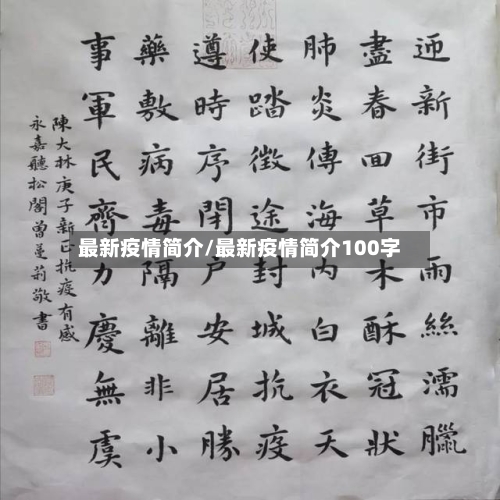 迎新街市雨絲濡臘
盡春回草木酥冠狀
肺炎傳海内白衣天
使踏徵途封城抗疫
遵時序閉户安居勝
藥敷病毒隔離非小
事軍民齊力慶無虞
陳大林庚子新正抗疫有感
永嘉聽松閣曾曼莉敬書
最新疫情简介/最新疫情简介100字